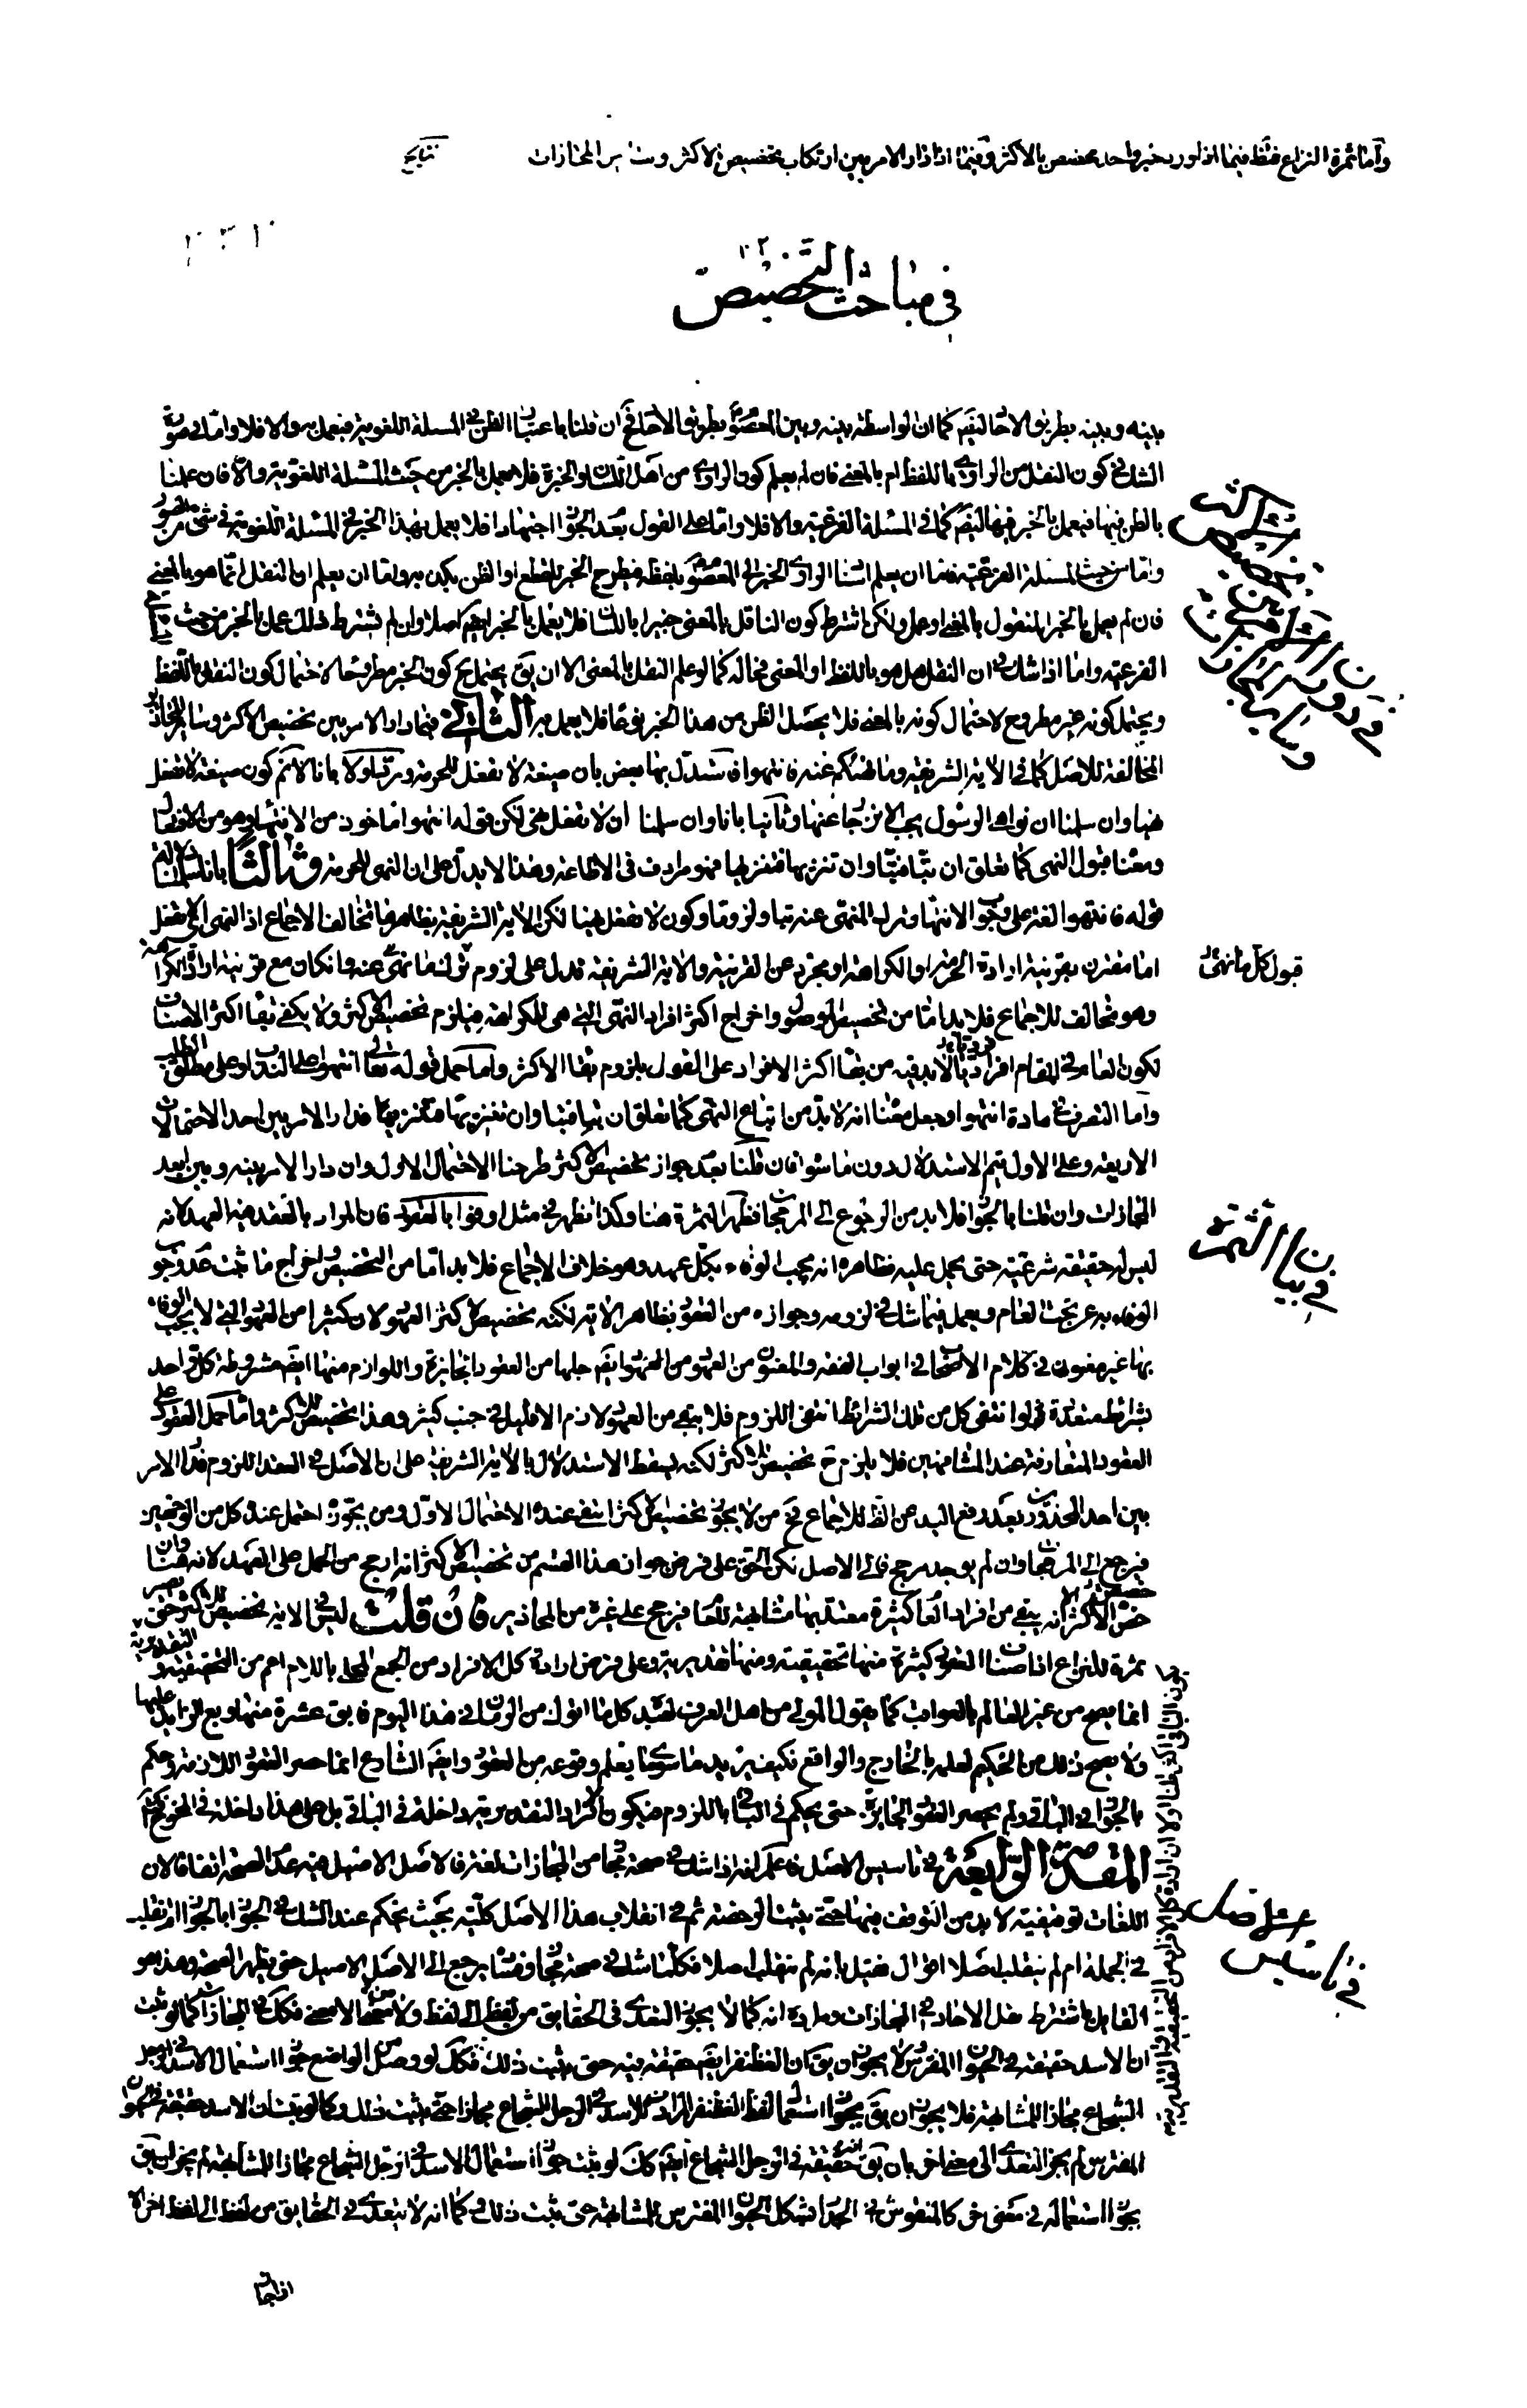 وأما ثمرة النزاع فتظهر فيما اذا ورد خبر واحد مخصص بالاكثر وفيما اذا دار الامر بين ارتكاب تخصيص الاكثر وسائر المجازات
في مباحث التخصيص
بينه وبينه بطريق الاحاد ايضا كما ان الواسطة بينه وبين المعصوم بطريق الاحاد ان قلنا باعتبار الظن في المسئلة اللغوية فيعمل به والا فلا واما في صورة
الشك في كون النقل من الراوي باللفظ ام بالمعنى فان لم يعلم كون الراوي من اهل اللسان والخبرة فلا يعمل بالخبر من حيث المسئلة اللغوية والا فان علمنا
بالظن فيها فيعمل بالخبر فيها ايضا كما في المسئلة الفرعية والا فلا واما على القول بعدم الجواز اجتهادا فلا يعمل بهذا الخبر في المسئلة اللغوية في شئ من الصور
واما من حيث المسئلة الفرعية فاما ان يعلم اسناد الراوي الخبر الى المعصوم بلفظه فيطرح الخبر للقطع او الظن بكذبه واما ان يعلم ان النقل انما هو بالمعنى
فان لم يعمل بالخبر المنقول بالمعنى او عمل ولكن اشترط كون الناقل بالمعنى خبيرا باللسان فلا يعمل بالخبر ايضا اصلا وان لم يشترط ذلك عمل بالخبر من حيث
الفرعية واما اذا شك في ان النقل هل هو باللفظ او المعنى فحاله كما لو علم النقل بالمعنى الا ان يق يحتمل ح كون الخبر مطروحا لاحتمال كون النقل باللفظ
ويحتمل كونه غير مطروح لاحتمال كونه بالمعنى فلا يحصل الظن من هذا الخبر نوعا فلا يعمل به الثاني فيما دار الامر بين تخصيص الاكثر وسائر المجازات
المخالفة للاصل كما في الاية الشريفة وما نهيكم عنه فانتهوا فاستدل بها بعض بان صيغة لا تفعل للحرمة ورد اولا بانا لانم كون صيغة لا تفعل
نهيا وان سلمنا ان نواهي الرسول يجب الانزجار عنها وثانيا بانا وان سلمنا ان لا تفعل نهي لكن قوله انتهوا ماخوذ من الانتهاء وهو من الافتعال
ومعناه قبول النهي كما تعلق ان وان فهو مرادف في الاطاعة وهذا لا يدل على ان النهي للحرمة وثالثا بانا سلمنا
قوله فانتهوا لغة على وجوب الانتهاء وترك المنهي عنه وكون لا تفعل نهيا لكن الاية الشريفة بظاهرها مخالفة للاجماع اذ النهي اي لا تفعل
اما مقترن بقرينة ارادة الحرمة او الكراهة او مجرد عن القرينة والاية الشريفة تدل على لزوم ترك ما نهي عنه وانكان مع قرينة ارادة الكراهة
قبول كل ما نهى
وهو مخالف للاجماع فلا بد اما من تخصيص الموصول واخراج اكثر افراد النهي التي هي للكراهة فيلزم تخصيص الاكثر ولا يكفي بقاء اكثر الاصناف
لكون العام في المقام افراديا لابد فيه من بقاء اكثر الافراد على القول بلزوم بقاء الاكثر واما حمل قوله تعالى انتهوا على الندب او على مطلق الطلب
واما التصرف في مادة انتهوا وجعل معناه انه لابد من اتباع النهي كما تعلق ان وان فدار الامر بين احد الاحتمالات
الاربعة وعلى الاول يتم الاستدلال دون ما سواه فان قلنا بعدم جواز تخصيص الاكثر طرحنا الاحتمال الاول وان دار الامر بينه وبين ابعد
المجازات وان قلنا بالجواز فلابد من الرجوع الى المرجحات فظهر الثمرة هنا وكذا تظهر في مثل اوفوا بالعقود فان المراد بالعقد هنا العهد لانه
في بيان الثمرة
ليس له حقيقة شرعية حتى يحمل عليه فظاهره انه يجب الوفاء بكل عهد وهو خلاف الاجماع فلا بد اما من التخصيص واخراج ما ثبت عدم وجوب
الوفاء به عن تحت العام ويعمل فيما شك في لزومه وجوازه من العقود بظاهر الاية لكنه تخصيص لاكثر العهود لان كثيرا من العهود التي لا يجب الوفاء
بها غير معنون في كلام الاصحاب في ابواب الفقه والمعنون من العهود من العهود ايضا جلها من العقود الجايزة واللوازم منها ايضا مشروطة كل واحد
بشرايط متعددة فلو انتفى كل من تلك الشرايط انتفى اللزوم فلا يبقى من العهود لازم الا قليل في جنب كثير وهذا تخصيص للاكثر واما حمل العقود على
العقود المتعارفة عند المشافهين فلا يلزم ح تخصيص الاكثر لكنه يسقط الاستدلال بالاية الشريفة على ان الاصل في العقد اللزوم فدار الامر
بين احد المحذورين بعد رفع اليد عن الظ للاجماع فح من لا يجوز تخصيص الاكثر انتفى عنده الاحتمال الاول ومن يجوزه احتمل عنده كل من الوجهين
فيرجع الى المرجحات وان لم يوجد مرجح فالى الاصل لكن الحق على فرض جواز هذا القسم من تخصيص الاكثر انه ارجح من الحمل على العهد لانه هنا وان
خص الاكثر الا انه يبقى من افراد العام كثيرة معتد بها مشابهة للعام فيرجح على غيره من المحاذير فان قلت ليس في الاية تخصيص للاكثر حتى يصير
ثمرة للنزاع اذ اصناف العقود كثيرة منها تحقيقية ومنها تقديرية وعلى فرض ارادة كل الافراد من الجمع المحلى باللام اعم من التحقيقية والتقديرية
انما يصح من غير العالم بالعواقب كما يقول المولى من اهل العرف لعبده كل ما اقول من الوفاء في هذا اليوم فابق عشرة منها وبع الزايد عليها
ولا يصح ذلك من الحكيم لعلمه بالخارج والواقع فكيف يريد ما سوى ما يعلم وقوعه من العقود وايضا الشارع انما حصر العقود اللازمة وحكم
بالجواز في الباقي ولم يحصر العقود الجايزة حتى يحكم في الباقي باللزوم فيكون الافراد التقديرية داخلة في الباقي بل على هذا داخلة في المخرج
المقدمة الرابعة في تاسيس الاصل فاعلم انه اذا شك في صحة مجاز من المجازات لغة فالاصل الاصيل فيه عدم الصحة اتفاقا لان
اللغات توقيفية لابد من التوقف فيها حتى يثبت الرخصة ثم في انقلاب هذا الاصل كلية بحيث يحكم عند الشك في الجواز بالجواز او انقلابه
في تاسيس الاصل
في الجملة ام لم ينقلب اصلا اقوال فقيل بانه لم ينقلب اصلا فكلما شك في صحة مجاز وفساده يرجع الى الاصل الاصيل حتى يظهر الصحة وهذا هو
القائل باشتراط نقل الاحاد في المجازات ومراده انه كما لا يجوز التعدي في الحقايق من لفظ الى لفظ ولا من معنى الى معنى فكذا في المجازات كما لو ثبت
ان الاسد حقيقة في الحيوان المفترس لا يجوز ان يق كان الغضنفر ايضا حقيقة فيه حتى يثبت ذلك فكذا لو وصل من الواضع جواز استعمال الاسد في الرجل
الشجاع مجازا للمشابهة فلا يجوز ان يق يجوز استعمال لفظ الغضنفر المرادف للاسد في الرجل الشجاع مجازا حتى يثبت ذلك وكما لو ثبت ان الاسد حقيقة في الحيوان
المفترس لم يجز التعدي الى معنى اخر بان يق انه حقيقة في الرجل الشجاع ايضا كذلك لو ثبت جواز استعمال الاسد في الرجل الشجاع مجازا للمشابهة لم يجز ان يق
يجوز استعماله في معنى اخر كالمنقوش في الجدار بشكل الحيوان المفترس للمشابهة حتى يثبت ذلك كما انه لا يتعدى في الحقايق من لفظ الى لفظ اخر الا